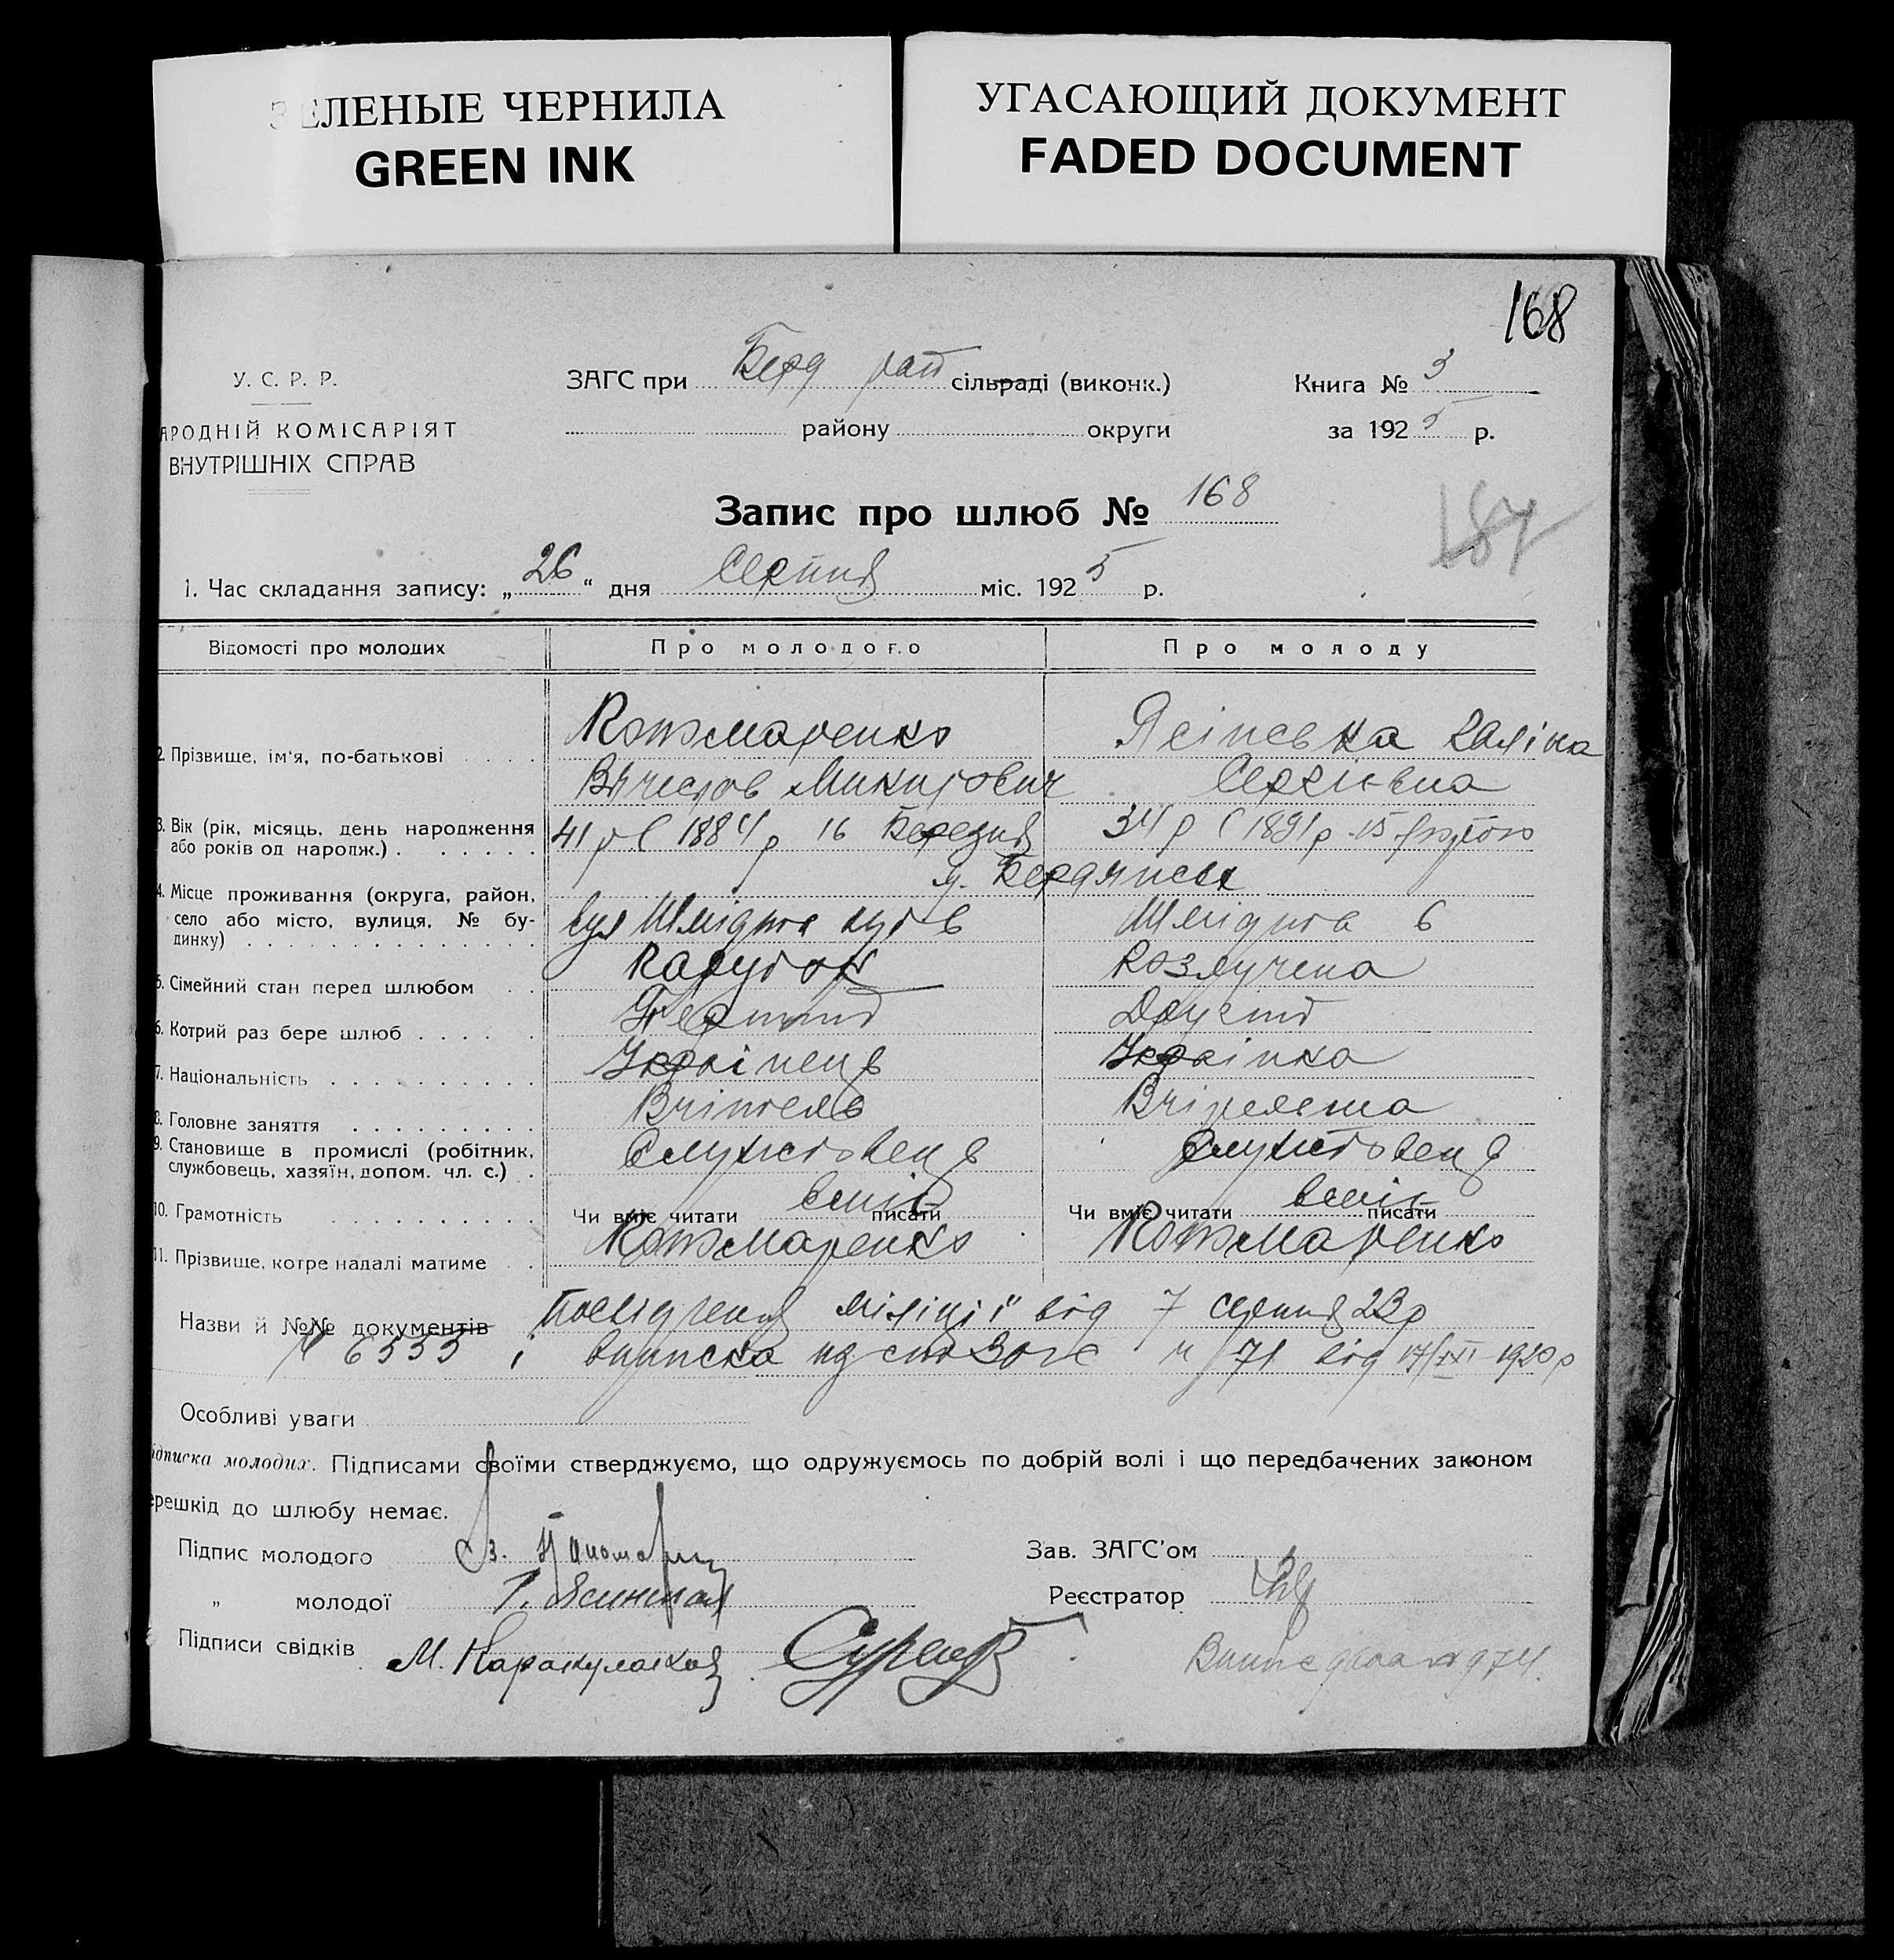 ЗЕЛЕНЫЕ ЧЕРНИЛА
GREEN INK
УГАСАЮЩИЙ ДОКУМЕНТ
FADED DOCUMENT
168
У. С. Р. Р.
АРОДНІЙ КОМІСАРІЯТ
ВНУТРІШНІХ СПРАВ
ЗАГС при Берд рай сільраді (виконк.)
району округи
Книга № 3
за 1925 р.
Запис про шлюб № 168
187
1. Час складання запису: „26“ дня Серпня міс. 1925 р.
Відомості про молодих Про молодого Про молоду
2. Прізвище, ім'я, по-батькові
Ясінська Галіна
Микитович Сергіївна
3. Вік (рік, місяць, день народження
або років од народж.)
41 р ( 1884 р 16 Березня 34 р ( 1891 р 15 лютого
м. Бердянськ
4. Місце проживання (округа, район,
село або місто, вулиця, № бу-
динку)
вул Шмідта 6 Шмідта 6
5. Сімейний стан перед шлюбом Розлучена
6. Котрий раз бере шлюб Перший Другий
7. Національність Українець Українка
8. Головне заняття Вчітель Вчітелька
9. Становище в промислі (робітник,
службовець, хазяїн, допом. чл. с.)
Службовець Службовець
10. Грамотність Чи вміє читати писати вміє Чи вміє читати писати вміє
11. Прізвище, котре надалі матиме
Назви й №№ документів міліції від 7 серпня 23 р
№ 6553 і виписка из ЗАГС № 71 від 17/XI 1920 р
Особливі уваги
ідписка молодих. Підписами своїми стверджуємо, що одружуємось по добрій волі і що передбачених законом
ерешкід до шлюбу немає.
Підпис молодого
„ молодої Г. Ясинская
Зав. ЗАГС'ом
Реєстратор
Підписи свідків